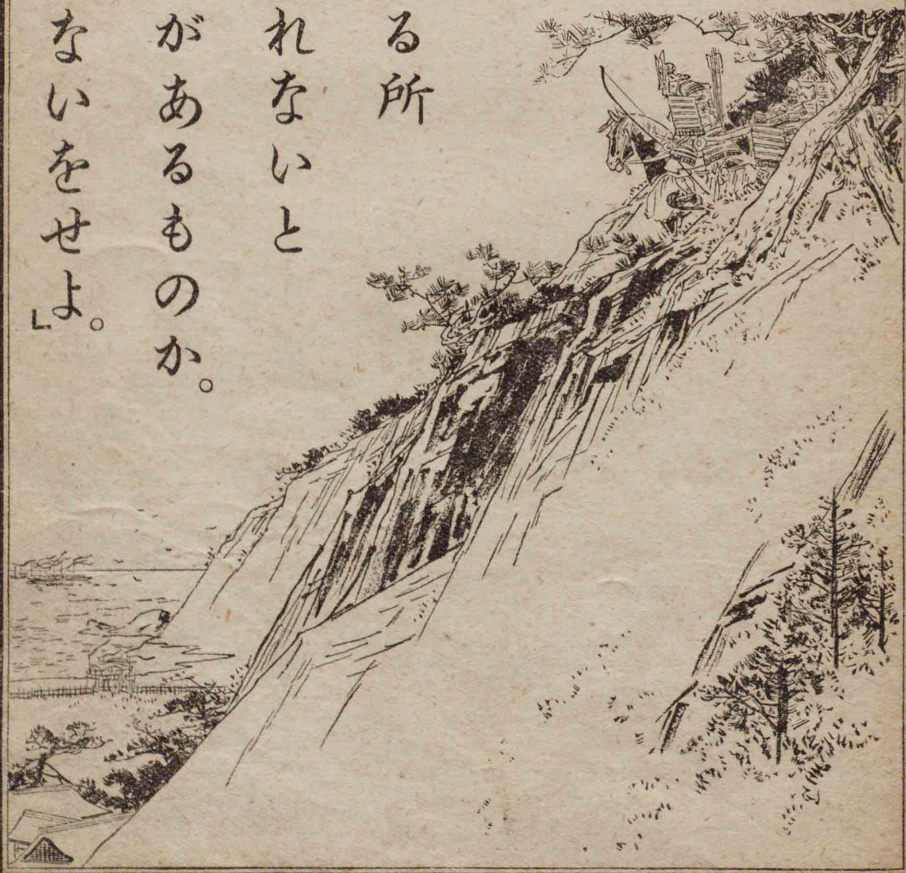 る所
れないと
があるものか。
ないをせよ。」